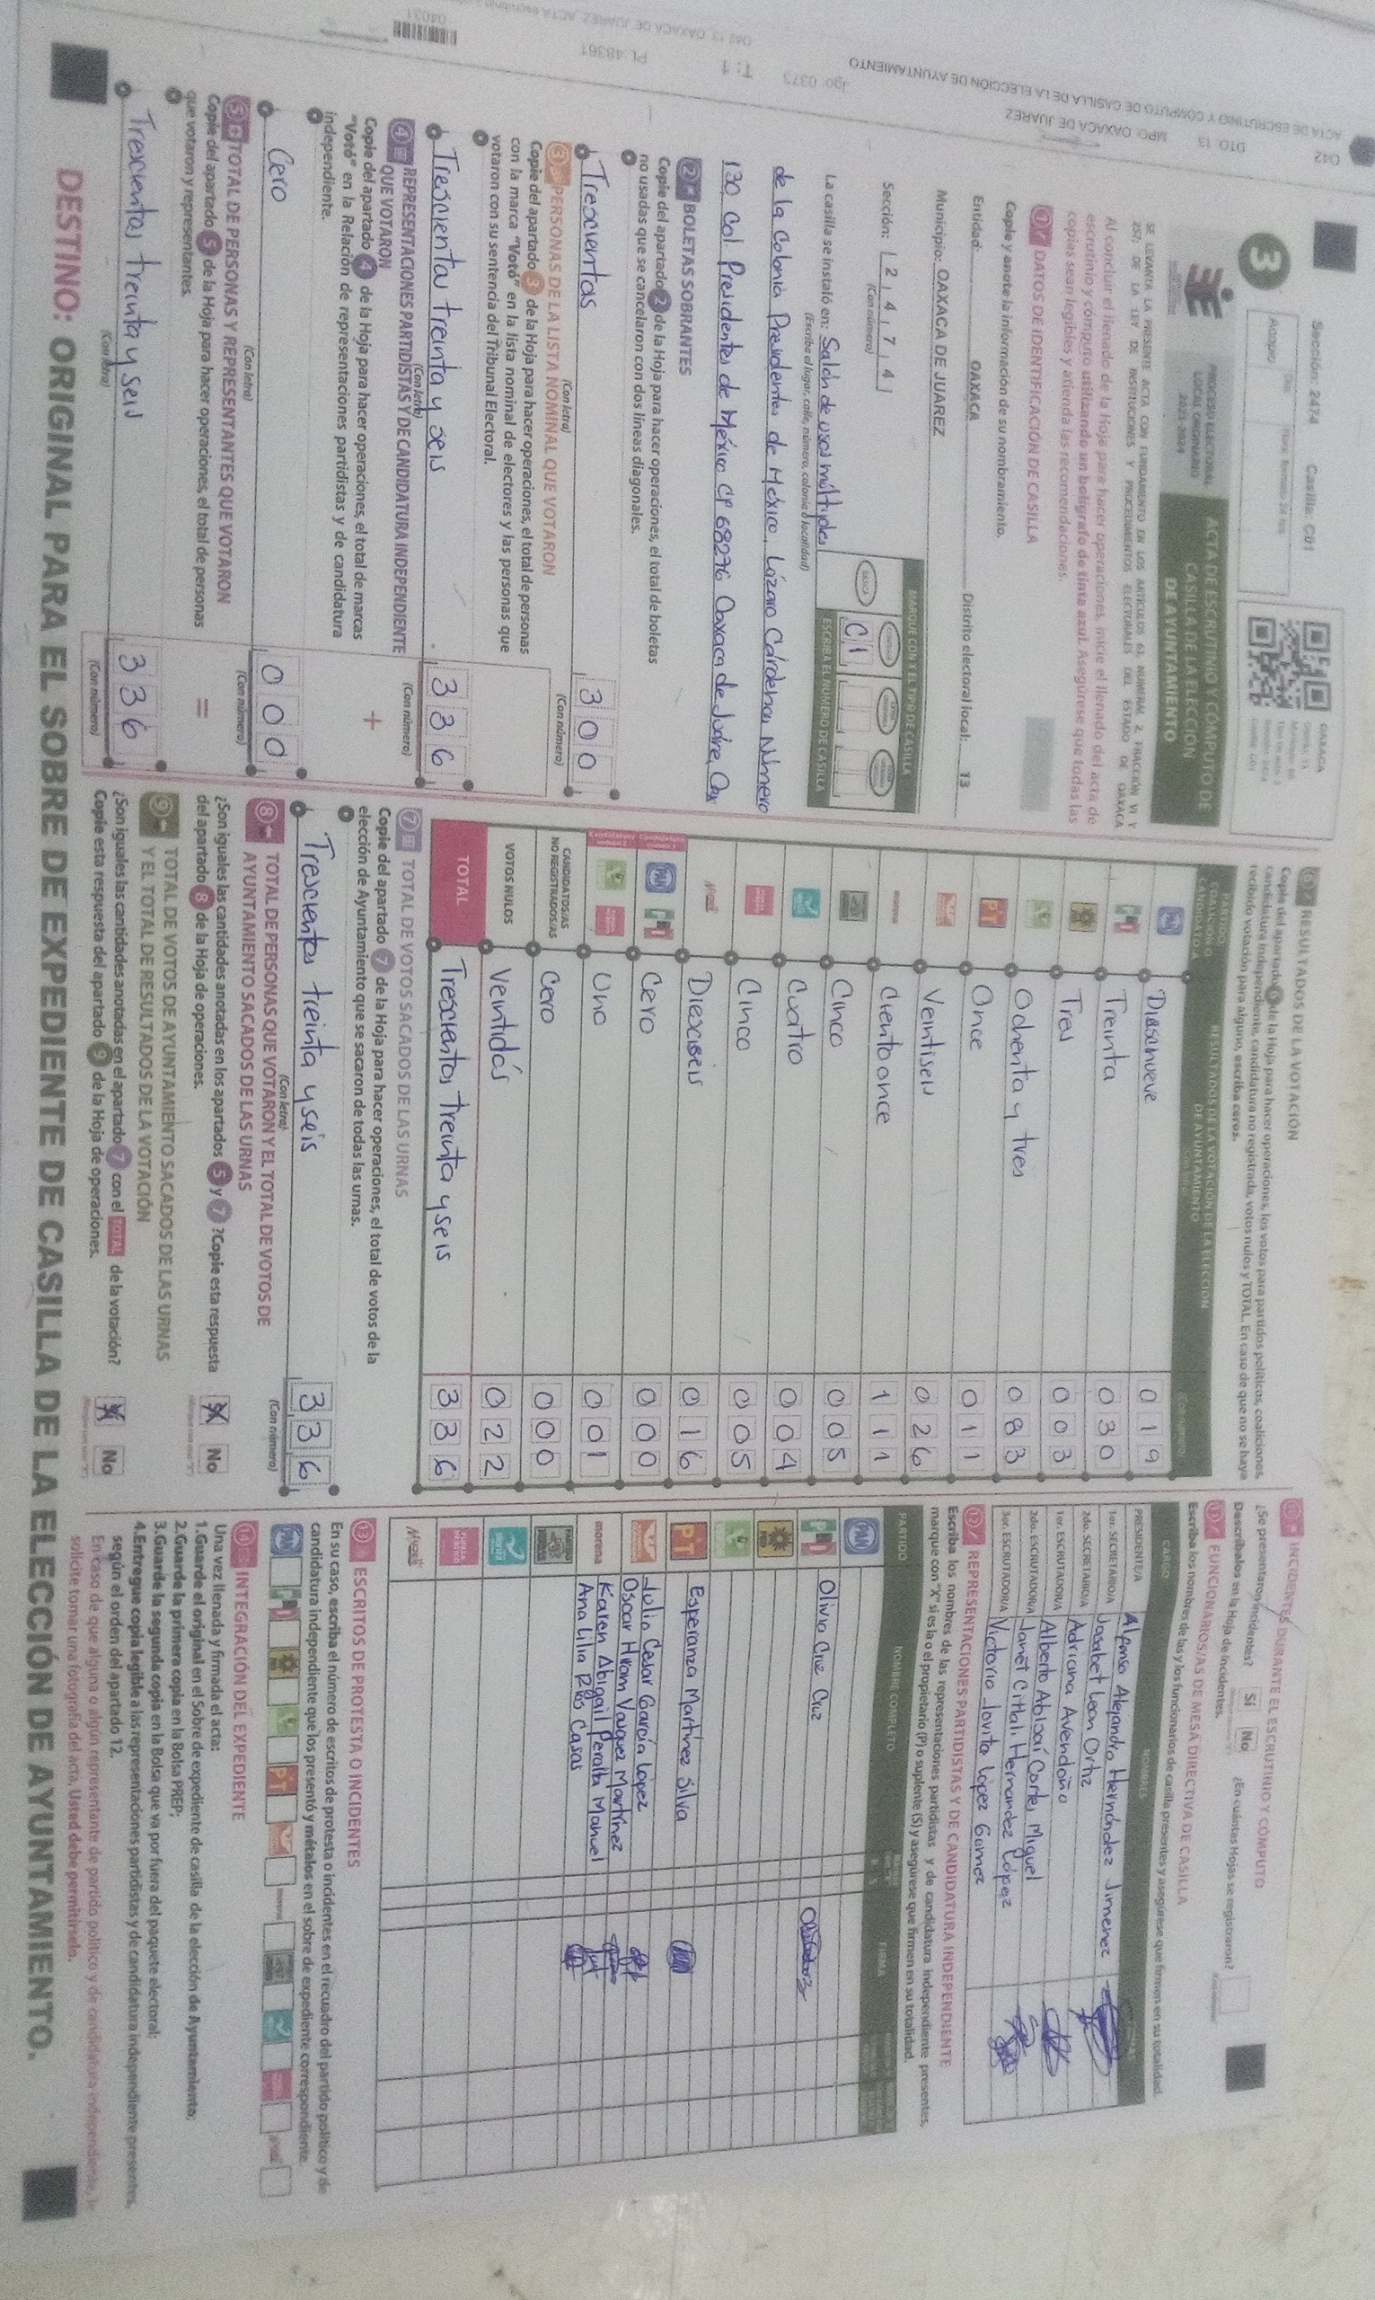 042
ACTA DE ESCRUTINIO Y CÓMPUTO DE CASILLA DE LA ELECCIÓN DE AYUNTAMIENTO
DTO 13 MPO: OAXACA DE JUAREZ
T: 1
PL 48361
Sección: 2474 Casilla: C01
OAXACA
3
Acuopo:
PROCESO ELECTORAL
LOCAL ORDINARIO
2023-2024
ACTA DE ESCRUTINIO Y CÓMPUTO DE
CASILLA DE LA ELECCIÓN
DE AYUNTAMIENTO
Al concluir el llenado de la Hoja para hacer operaciones, inicie el llenado del acta de
escrutinio y cómputo utilizando un bolígrafo de tinta azul. Asegúrese que todas las
copias sean legibles y atienda las recomendaciones.
1 DATOS DE IDENTIFICACIÓN DE CASILLA
Copie y anote la información de su nombramiento.
Entidad: OAXACA Distrito electoral local: 13
Municipio: OAXACA DE JUAREZ
Sección: 2 4 7 4
(Con número)
MARQUE CON X EL TIPO DE CASILLA
C 1
ESCRIBA EL NÚMERO DE CASILLA
La casilla se instaló en: Salón de usos múltiples
(Escriba el lugar, calle, número, colonia o localidad)
de la Colonia Presidentes de México, Lázaro Cárdenas Número
130 Col. Presidentes de México CP 68276 Oaxaca de Juárez, Oax
2 BOLETAS SOBRANTES
Copie del apartado 2 de la Hoja para hacer operaciones, el total de boletas
no usadas que se cancelaron con dos líneas diagonales.
Trescientas 3 0 0
(Con letra) (Con número)
3 PERSONAS DE LA LISTA NOMINAL QUE VOTARON
Copie del apartado 3 de la Hoja para hacer operaciones, el total de personas
con la marca "Votó" en la lista nominal de electores y las personas que
votaron con su sentencia del Tribunal Electoral.
Trescienta treinta y seis 3 3 6
(Con letra) (Con número)
4 REPRESENTACIONES PARTIDISTAS Y DE CANDIDATURA INDEPENDIENTE
QUE VOTARON
Copie del apartado 4 de la Hoja para hacer operaciones, el total de marcas
"Votó" en la Relación de representaciones partidistas y de candidatura
independiente.
+
Cero 0 0 0
(Con letra) (Con número)
5 TOTAL DE PERSONAS Y REPRESENTANTES QUE VOTARON
Copie del apartado 5 de la Hoja para hacer operaciones, el total de personas
que votaron y representantes.
=
Trescientas treinta y seis 3 3 6
(Con letra) (Con número)
RESULTADOS DE LA VOTACIÓN
Copie del apartado de la Hoja para hacer operaciones, los votos para partidos políticos, coaliciones,
candidatura independiente, candidatura no registrada, votos nulos y TOTAL. En caso de que no se haya
recibido votación para alguno, escriba ceros.
RESULTADOS DE LA VOTACIÓN DE LA ELECCIÓN
DE AYUNTAMIENTO
PAN Diesanueve 0 1 9
PRI Treinta 0 3 0
Tres 0 0 3
Ochenta y tres 0 8 3
PT Once 0 1 1
Veintiseis 0 2 6
morena Ciento once 1 1 1
Cinco 0 0 5
Cuatro 0 0 4
Cinco 0 0 5
Diexiseis 0 1 6
PAN PRI Cero 0 0 0
Uno 0 0 1
CANDIDATOS/AS
NO REGISTRADOS/AS Cero 0 0 0
VOTOS NULOS Veintidós 0 2 2
TOTAL Trescientos treinta y seis 3 3 6
7 TOTAL DE VOTOS SACADOS DE LAS URNAS
Copie del apartado 7 de la Hoja para hacer operaciones, el total de votos de la
elección de Ayuntamiento que se sacaron de todas las urnas.
Trescientos treinta y seis 3 3 6
(Con letra) (Con número)
8 TOTAL DE PERSONAS QUE VOTARON Y EL TOTAL DE VOTOS DE
AYUNTAMIENTO SACADOS DE LAS URNAS
¿Son iguales las cantidades anotadas en los apartados 5 y 7 ?Copie esta respuesta
del apartado 8 de la Hoja de operaciones.
No
9 TOTAL DE VOTOS DE AYUNTAMIENTO SACADOS DE LAS URNAS
Y EL TOTAL DE RESULTADOS DE LA VOTACIÓN
¿Son iguales las cantidades anotadas en el apartado 7 con el TOTAL de la votación?
Copie esta respuesta del apartado 9 de la Hoja de operaciones.
No
INCIDENTES DURANTE EL ESCRUTINIO Y CÓMPUTO
¿Se presentaron incidentes? Sí No ¿En cuántas Hojas se registraron?
Descríbalos en la Hoja de Incidentes.
11 FUNCIONARIOS/AS DE MESA DIRECTIVA DE CASILLA
Escriba los nombres de las y los funcionarios de casilla presentes y asegúrese que firmen en su totalidad.
CARGO NOMBRES
PRESIDENTE/A Alfonso Alejandro Hernández Jimenez
1er. SECRETARIO/A Jasabet Leon Ortiz
2do. SECRETARIO/A Adriana Avendaño
1er. ESCRUTADOR/A Alberto Cortes Miguel
2do. ESCRUTADOR/A Janet Citlali Hernandez López
3er. ESCRUTADOR/A Victorio Jovito López Gomez
12 REPRESENTACIONES PARTIDISTAS Y DE CANDIDATURA INDEPENDIENTE
Escriba los nombres de las representaciones partidistas y de candidatura independiente presentes,
marque con "X" si es la o el propietario (P) o suplente (S) y asegúrese que firmen en su totalidad.
PARTIDO NOMBRE COMPLETO FIRMA
PAN
PRI Oliva Cruz Cruz
PT Esperanza Martínez Silva
Julio Cesar García López
Oscar Hiram Vasquez Martínez
morena Karen Abigail Peralta Manuel
Ana Lilia Rios Casas
13 ESCRITOS DE PROTESTA O INCIDENTES
En su caso, escriba el número de escritos de protesta o incidentes en el recuadro del partido político y de
candidatura independiente que los presentó y métalos en el sobre de expediente correspondiente.
14 INTEGRACIÓN DEL EXPEDIENTE
Una vez llenada y firmada el acta:
1.Guarde el original en el Sobre de expediente de casilla de la elección de Ayuntamiento;
2.Guarde la primera copia en la Bolsa PREP;
3.Guarde la segunda copia en la Bolsa que va por fuera del paquete electoral;
4.Entregue copia legible a las representaciones partidistas y de candidatura independiente presentes,
según el orden del apartado 12.
En caso de que alguna o algún representante de partido político y de candidatura independiente, le
solicite tomar una fotografía del acta, Usted debe permitírselo.
DESTINO: ORIGINAL PARA EL SOBRE DE EXPEDIENTE DE CASILLA DE LA ELECCIÓN DE AYUNTAMIENTO.